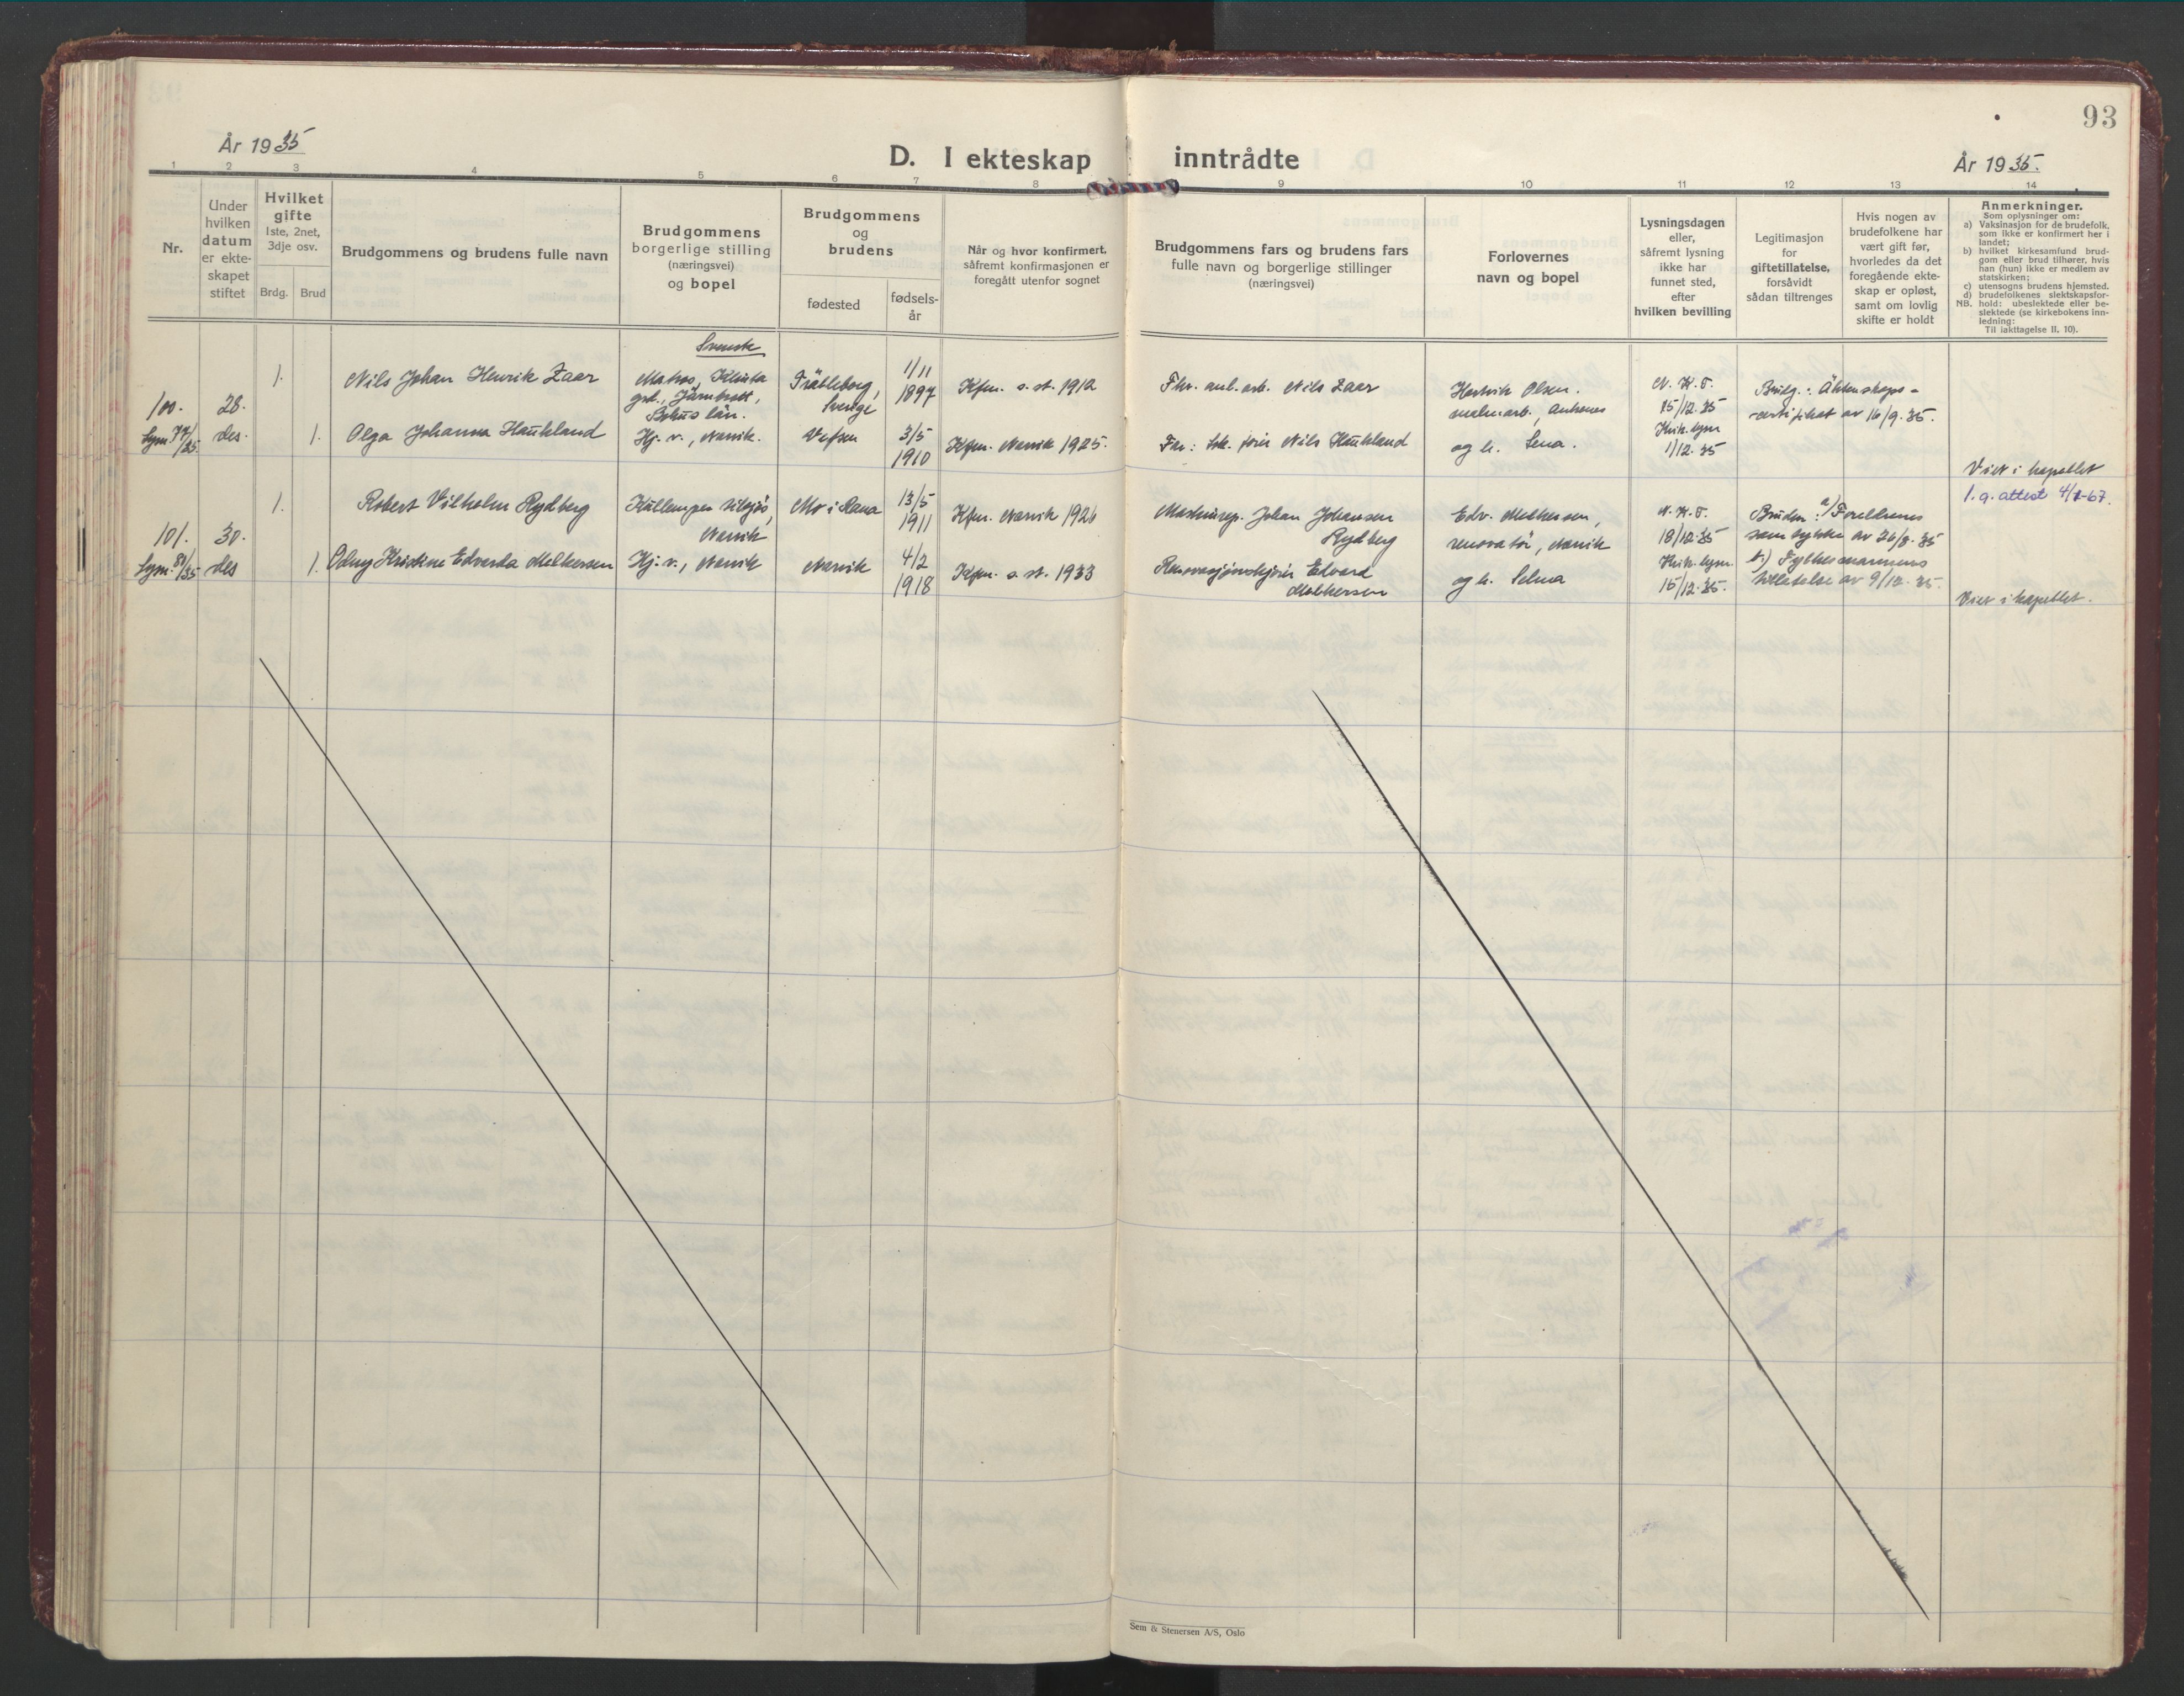 93
År 1935
D. I ekteskap inntrådte
År 1935.
1 2 3 4 5 6 7 8 9 10 11 12 13 14
Nr.
Under
hvilken
datum
er ekte-
skapet
stiftet
Hvilket
gifte
1ste, 2net,
3dje osv.
Brdg. Brud
Brudgommens og brudens fulle navn
Brudgommens
borgerlige stilling
(næringsvei)
og bopel
Brudgommens
og
brudens
fødested
fødsels-
år
Når og hvor konfirmert,
såfremt konfirmasjonen er
foregått utenfor sognet
Brudgommens fars og brudens fars
fulle navn og borgerlige stillinger
(næringsvei)
Forlovernes
navn og bopel
Lysningsdagen
eller,
såfremt lysning
ikke har
funnet sted,
efter
hvilken bevilling
Legitimasjon
for
giftetillatelse,
forsåvidt
sådan tiltrenges
Hvis nogen av
brudefolkene har
vært gift før,
hvorledes da det
foregående ekte-
skap er opløst,
samt om lovlig
skifte er holdt
Anmerkninger.
Som oplysninger om:
a) Vaksinasjon for de brudefolk,
som ikke er konfirmert her i
landet;
b) hvilket kirkesamfund brud-
gom eller brud tilhører, hvis
han (hun) ikke er medlem av
statskirken;
c) utensogns brudens hjemsted.
d) brudefolkenes slektskapsfor-
NB. hold: ubeslektede eller be-
slektede (se kirkebokens inn-
ledning:
Til iakttagelse II, 10).
100.
Lysn. 77/35.
28.
des.
1.
Nils Johan Henrik Zaar
Svensk
Matros,
Bohus län.
Trälleborg,
Sverige
1/11
1897
Kfm. s. st. 1912
Nils Zaar
Hartvik Olsen.
malmarb., Ankenes
N. K. T.
15/12.35
Kirk. lysn
1/12.35
Brudg.: Äktenskaps-
certifikat av 16/9.35.
1.
Olga Johanna Haukland
Hj. v., Narvik.
Vefsen
3/5
1910
Kfm. Narvik 1925.
Nils Haukland
og h. Lena.
Viet i kapellet
l. a. attest 4/1-67.
101.
Lysn. 81/35
30.
des
1.
Robert Vilhelm Rydberg
Narvik
Mo i Rana
13/5
1911
Kfm. Narvik 1926
Maskinrep. Johan Johansen
Rydberg
Edv. Melkersen,
renovatør, Narvik
N. K. T.
18/12.35
Kirk. lysn.
15/12.35.
Bruden: a) Foreldrenes
samtykke av 26/8.35
b.) Fylkesmannens
tillatelse av 9/12.35.
1.
Odny Kristine Edvarda Melkersen
Hj. v., Narvik
Narvik
4/2
1918
Kfm. s. st. 1933
Renovasjonskjører Edvard
Melkersen
og h. Selma
Viet i kapellet.
Sem & Stenersen A/S, Oslo